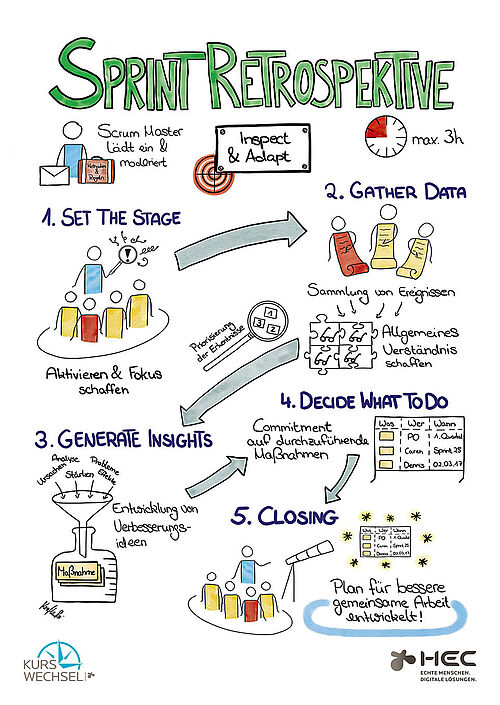 SPRINT RETROSPEKTIVE
Scrum Master
lädt ein &
moderiert
Methoden
& Regeln
Inspect
& Adapt
max. 3h
1. SET THE STAGE
Aktivieren & Fokus
schaffen
2. GATHER DATA
Sammlung von Ereignissen
Allgemeines
Verständnis
schaffen
Priorisierung
der Erkenntnisse
1
3 2
3. GENERATE INSIGHTS
Ursachen
Analyse
Stärken
Probleme
Maßnahme
Entwicklung von
Verbesserungs-
ideen
4. DECIDE WHAT TO DO
Commitment
auf durchzuführende
Maßnahmen
Was Wer Wann
PO 1. Quartal
Caren Sprint 25
Dennis 02.03.17
5. CLOSING
Was Wer Wann
PO 1. Quartal
Caren Sprint 25
Dennis 02.03.17
Plan für bessere
gemeinsame Arbeit
entwickelt!
KURS
WECHSEL
HEC
ECHTE MENSCHEN.
DIGITALE LÖSUNGEN.